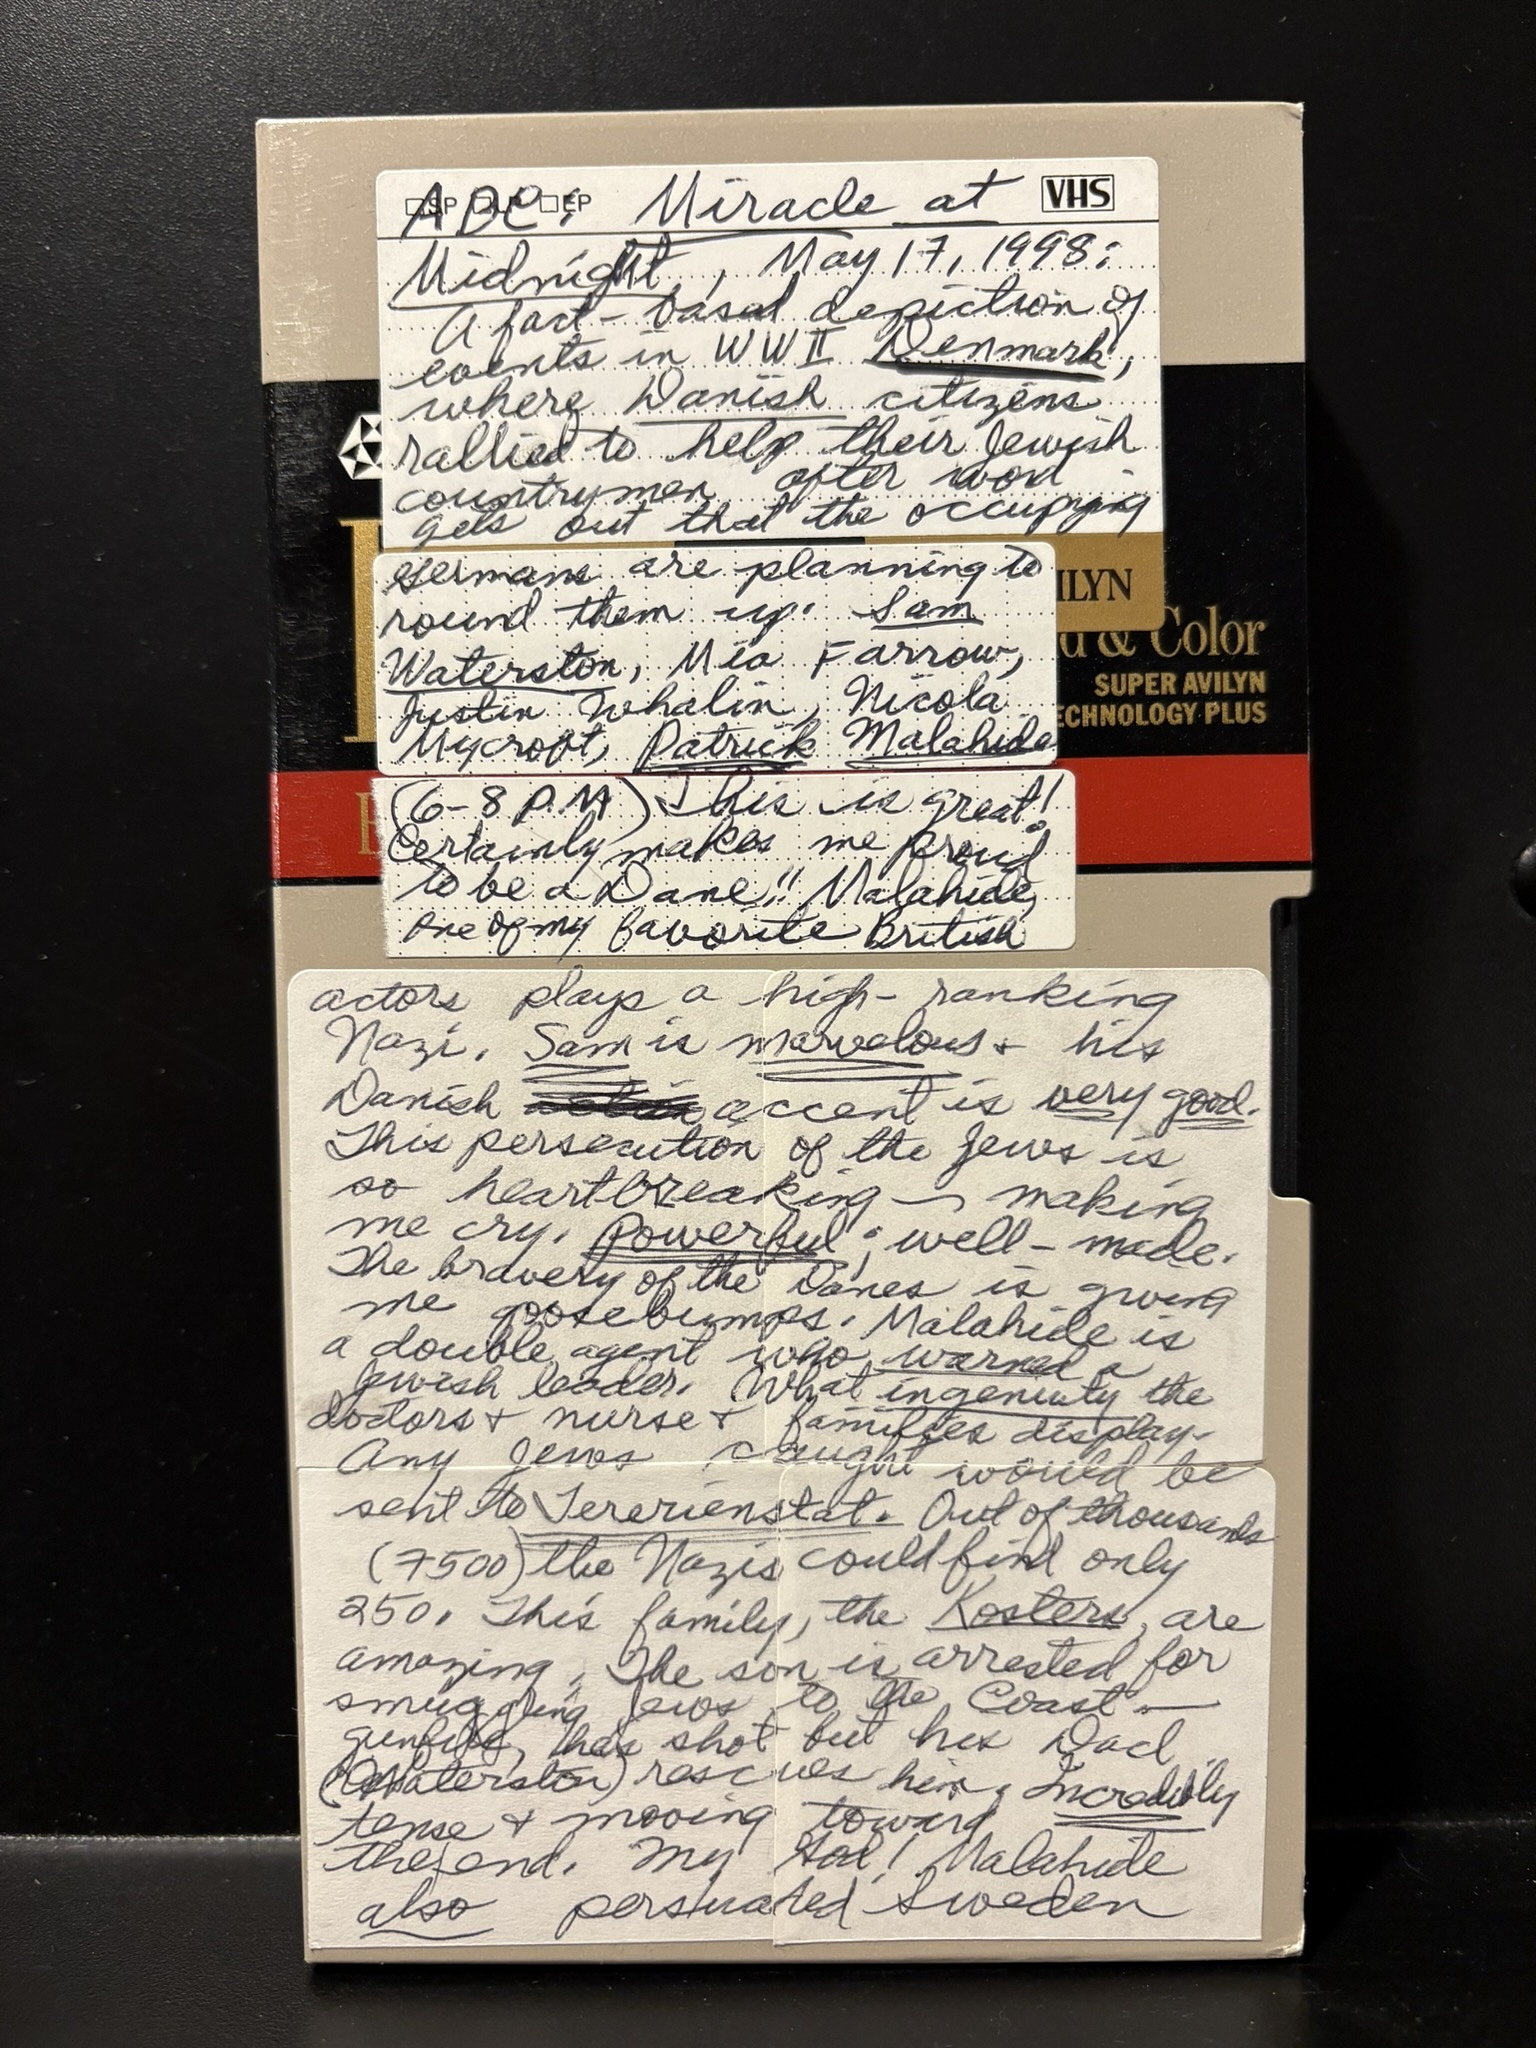 ABC: Miracle at
□SP □LP □EP
VHS
Midnight, May 17, 1998:
A fact-based depiction of
events in WWII Denmark,
where Danish citizens
rallied to help their Jewish
countrymen after word
gets out that the occupying
Germans are planning to
round them up. Sam
Waterston, Mia Farrow,
Justin Whalin, Nicola
Mycroft, Patrick Malahide
(6-8 P.M) This is great!
Certainly makes me proud
to be a Dane!! Malahide,
one of my favorite British
actors plays a high-ranking
Nazi. Sam is marvelous & his
Danish accent is very good.
This persecution of the Jews is
so heartbreaking – making
me cry. Powerful; well-made.
The bravery of the Danes is giving
me goosebumps. Malahide is
a double agent who warned a
Jewish leader. What ingenuity the
doctors & nurse & families display.
Any Jews caught would be
sent to Tererienstat. Out of thousands
(7500) the Nazis could find only
250. This family, the Kosters, are
amazing. The son is arrested for
smuggling Jews to the Coast –
gunfire, he's shot but his Dad
(Waterston) rescues him. Incredibly
tense & moving toward
the end. My God! Malahide
also persuaded Sweden
ILYN
d & Color
SUPER AVILYN
ECHNOLOGY PLUS